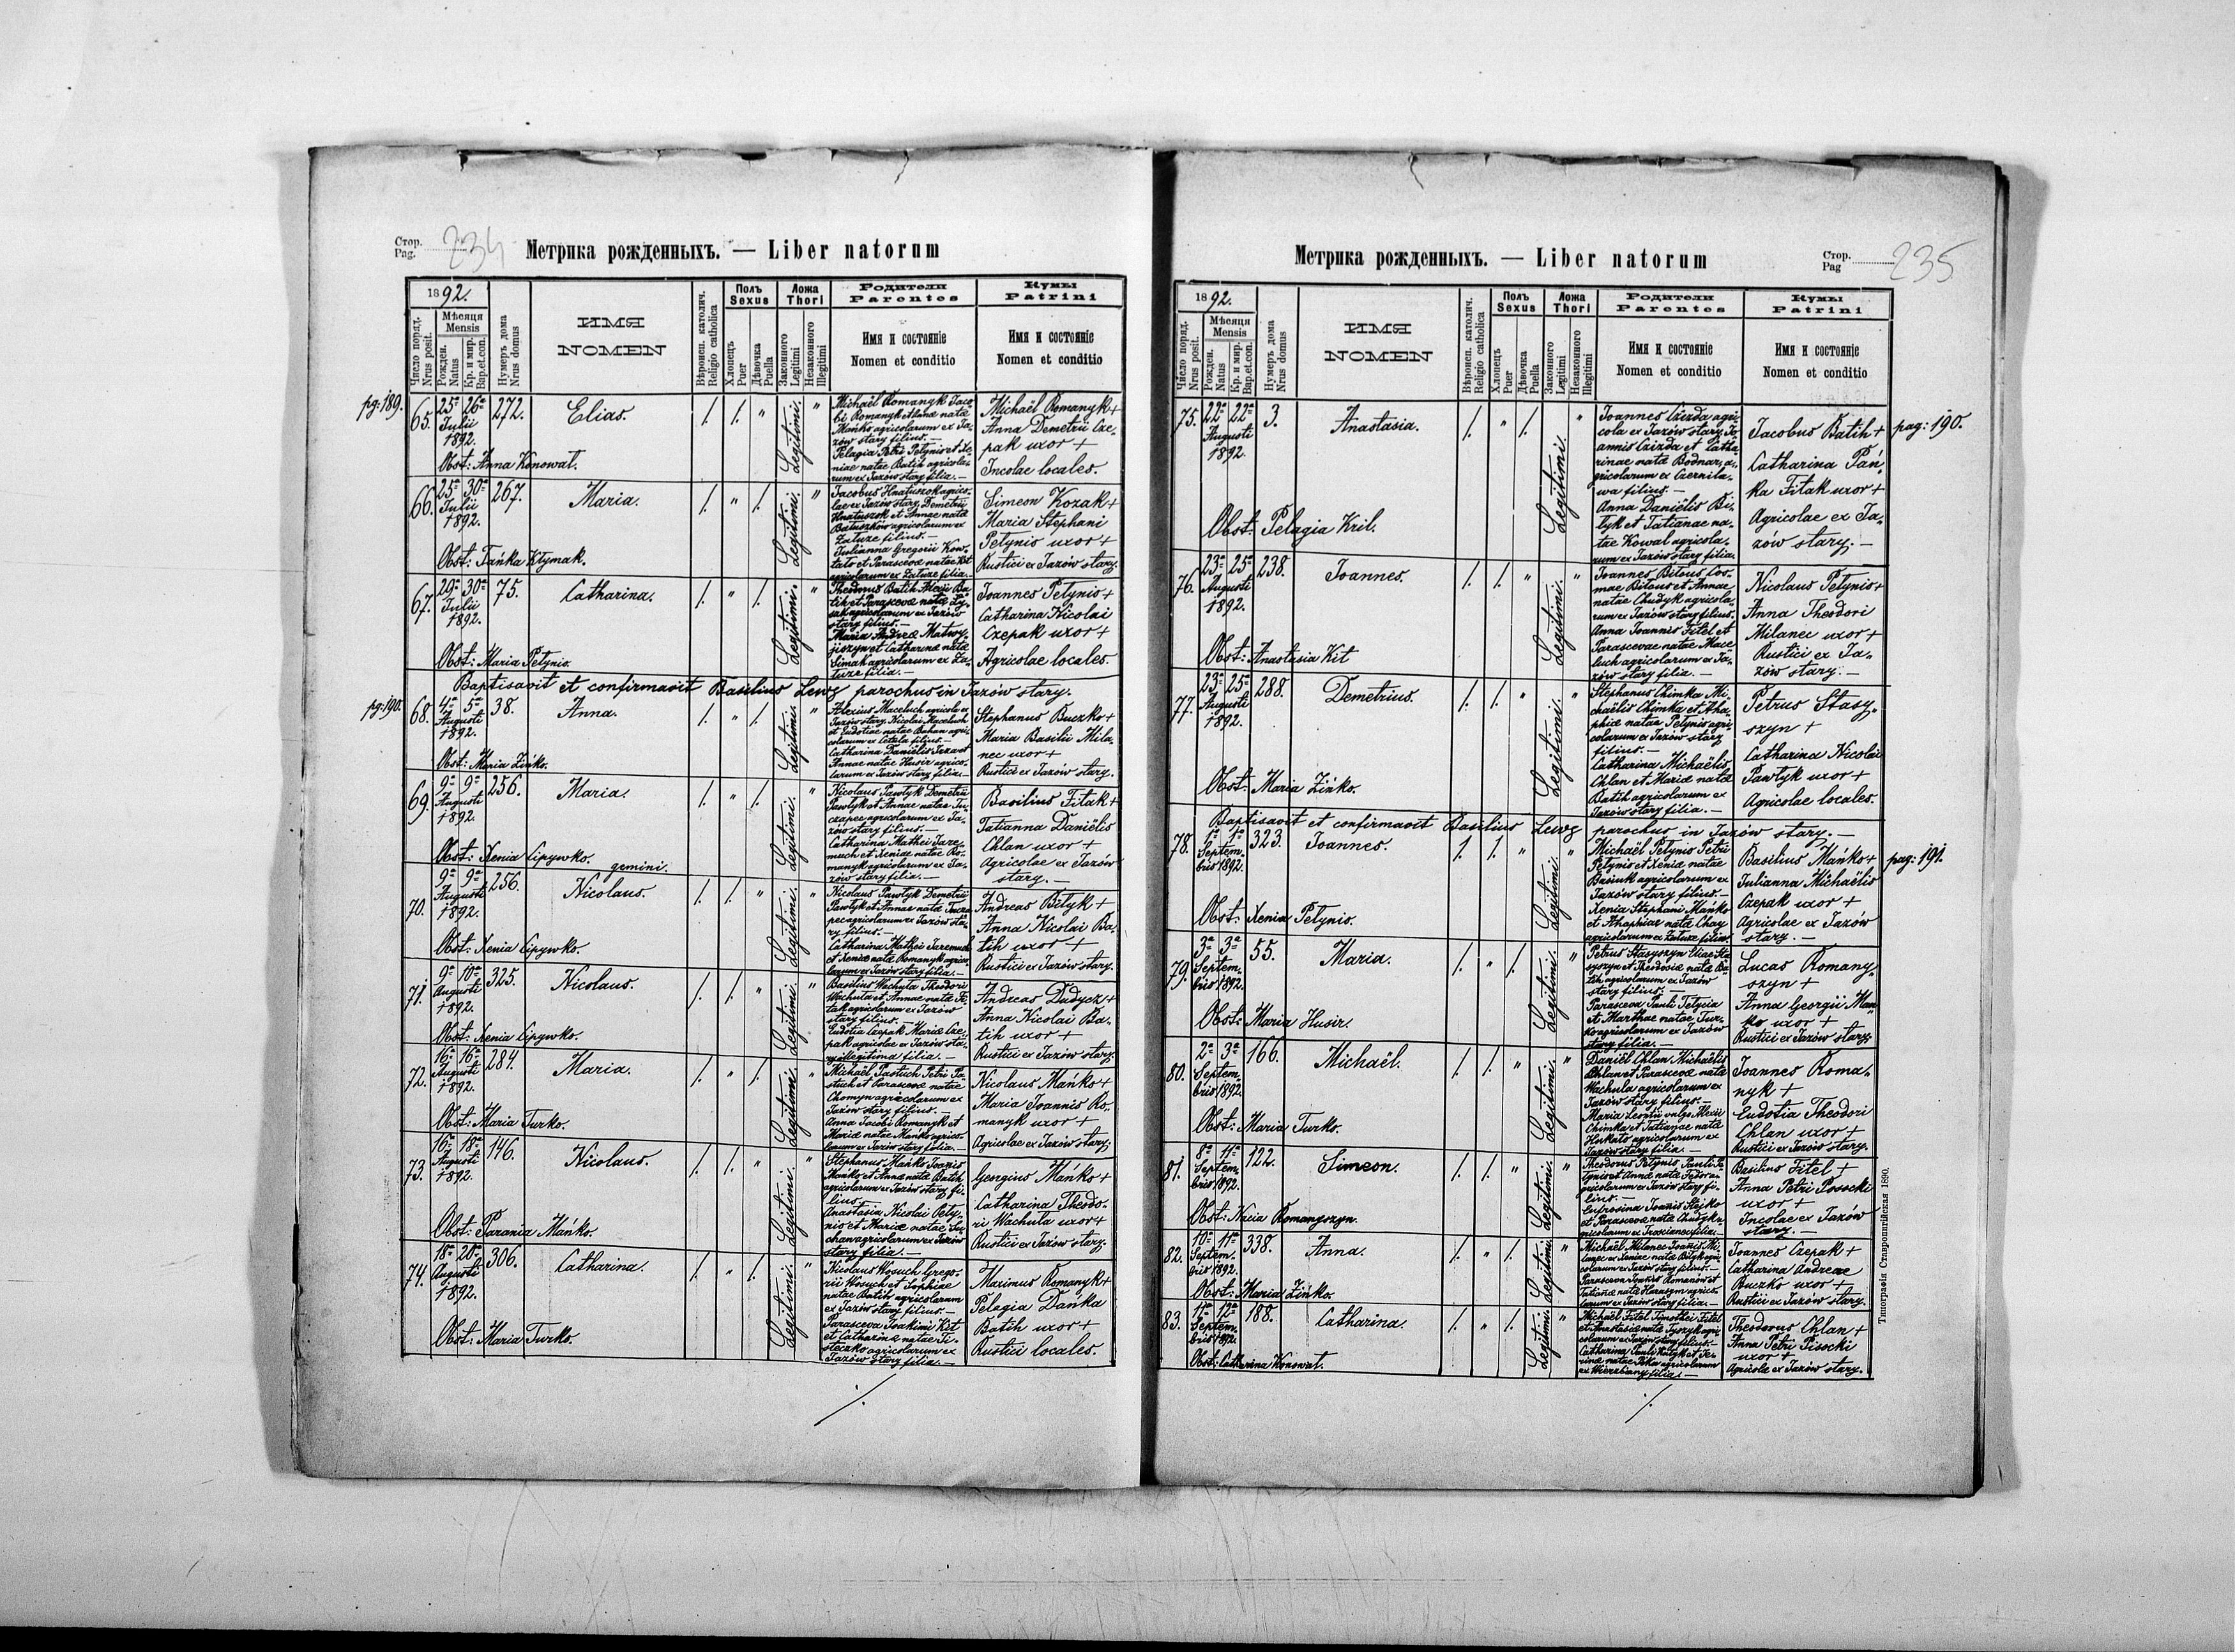 Стор.
Pag. 234
Метрика рожденныхъ. — Liber natorum
1892.
Число поряд.
Nrus posit.
Мѣсяця
Mensis
Рожден.
Natus
Кр. и мир.
Bap.et.con.
Нумеръ дома
Nrus domus
ИМЯ
NOMEN
Вѣроисп. католич.
Religio catholica
Полъ
Sexus
Хлопецъ
Puer
Дѣвочка
Puella
Ложа
Thori
Законного
Legitimi
Незаконного
Illegitimi
Родители
Parentes
Имя и состояніе
Nomen et conditio
Кумы
Patrini
Имя и состояніе
Nomen et conditio
pg: 189.
65. 25a 26a Julii 1892. 272. Elias. 1. 1. " Legitimi. "
Michaël Romanyk Jaco-
bi Romanyk et Annae natae
Mańko agricolarum ex Ja-
zów stary filius. —
Pelagia Petri Petynio et Xe-
niae natae Batih agricola-
rum ex Jazów stary filia. —
Michaël Romanyk +
Anna Demetrii Cze-
pak uxor +
Incolae locales.
Obst: Anna Konowat.
66. 25a 30a Julii 1892. 267. Maria. 1. " 1. Legitimi. "
Jacobus Hnatuszok agrico-
lae ex Jazów stary Demetrii
Hnatuszok et Annae natae
agricolarum ex
Zaluze filius. —
Julianna Gregorii
et Parascevae natae Kit
agricolarum ex Zaluze filia. —
Simeon Kozak +
Maria Stephani
Petynio uxor +
Rustici ex Jazów stary.
Obst: Tańka Klymak.
67. 29a 30a Julii 1892. 75. Catharina. 1. " 1. Legitimi. "
Theodorus Batih Alexii Ba-
tih et Parascevae natae
agricolarum ex Jazów
stary filius. —
Maria Andreae Matwy-
jiszyn et Catharinae natae
Simak agricolarum ex Za-
luze filia. —
Joannes Petynio +
Catharina Nicolai
Czepak uxor +
Agricolae locales.
Obst: Maria Petynio.
Baptisavit et confirmavit Basilius Lewz parochus in Jazów stary.
pg: 190.
68. 4a 5a Augusti 1892. 38. Anna. 1. " 1. Legitimi. "
Alexius Maceluch agricola ex
Jazów stary, Nicolai Maceluch
et Eudotiae natae Bohan agri-
colarum ex Cetula filius. —
Catharina Daniëlis et
Annae natae Husir agrico-
larum ex Jazów stary filia. —
Stephanus Buczko +
Maria Basilii Mila-
nec uxor +
Rustici ex Jazów stary.
Obst: Maria Zińko.
69. 9a 9a Augusti 1892. 256. Maria. 1. " 1. Legitimi. "
Nicolaus Pawlyk Demetrii
Pawlyk et Annae natae Tu-
czapec agricolarum ex Ja-
zów stary filius. —
Catharina Mathei Jare-
much et Xeniae natae Ro-
manyk agricolarum ex Ja-
zów stary filia. —
Basilius Fitak +
Tatianna Daniëlis
Chlan uxor +
Agricolae ex Jazów
stary. —
Obst: Xenia Lipywko.
gemini.
70. 9a 9a Augusti 1892. 256. Nicolaus. 1. 1. " Legitimi. "
Nicolaus Pawlyk Demetrii
Pawlyk et Annae natae Tucza-
pec agricolarum ex Jazów sta-
ry filius. —
Catharina Mathei Jaremuch
et Xeniae natae Romanyk agrico-
larum ex Jazów stary filia. —
Andreas Bilyk +
Anna Nicolai Ba-
tih uxor +
Rustici ex Jazów stary.
Obst: Xenia Lipywko.
71. 9a 10a Augusti 1892. 325. Nicolaus. 1. 1. " Legitimi. "
Basilius Wachula Theodori
Wachula et Annae natae Fi-
tak agricolarum ex Jazów
stary filius. —
Eudotia Czepak Mariae Cze-
pak agricolae ex Jazów sta-
ry illegitima filia. —
Andreas Dudycz +
Anna Nicolai Ba-
tih uxor +
Rustici ex Jazów stary.
Obst: Xenia Lipywko.
72. 16a 16a Augusti 1892. 284. Maria. 1. " 1. Legitimi. "
Michaël Pastuch Petri Pa-
stuch et Parascevae natae
Chomyn agricolarum ex
Jazów stary filius. —
Anna Jacobi Romanyk et
Mariae natae Mańko agrico-
larum ex Jazów stary filia. —
Nicolaus Mańko +
Maria Joannis Ro-
manyk uxor +
Agricolae ex Jazów stary.
Obst: Maria Turko.
73. 16a 18a Augusti 1892. 146. Nicolaus. 1. 1. " Legitimi. "
Stephanus Mańko Joannis
Mańko et Annae natae Batih
agricolarum ex Jazów stary fi-
lius. —
Anastasia Nicolai Pety-
nio et Mariae natae Su-
chan agricolarum ex Jazów
stary filia. —
Georgius Mańko +
Catharina Theodo-
ri Wachula uxor +
Rustici ex Jazów stary.
Obst: Parania Mańko.
74. 18a 20a Augusti 1892. 306. Catharina. 1. " 1. Legitimi. "
Nicolaus Wosuch Grego-
rii Wosuch et Sophiae
natae Batih agricolarum
ex Jazów stary filius. —
Parasceva Joakimi Kit
et Catharinae natae Ti-
steczko agricolarum ex
Jazów stary filia. —
Maximus Romanyk +
Pelagia Dańka
Batih uxor +
Rustici locales.
Obst: Maria Turko.
Метрика рожденныхъ. — Liber natorum
Стор.
Pag 235
1892.
Число поряд.
Nrus posit.
Мѣсяця
Mensis
Рожден.
Natus
Кр. и мир.
Bap.et.con.
Нумеръ дома
Nrus domus
ИМЯ
NOMEN
Вѣроисп. католич.
Religio catholica
Полъ
Sexus
Хлопецъ
Puer
Дѣвочка
Puella
Ложа
Thori
Законного
Legitimi
Незаконного
Illegitimi
Родители
Parentes
Имя и состояніе
Nomen et conditio
Кумы
Patrini
Имя и состояніе
Nomen et conditio
75. 22a 22a Augusti 1892. 3. Anastasia. 1. " 1. Legitimi. "
Joannes Czizda agri-
cola ex Jazów stary, Jo-
annis Czizda et Catha-
rinae natae Bodnar, a-
gricolarum ex Czernila-
wa filius. —
Anna Daniëlis Bi-
lyk et Tatianae na-
tae Kowal agricola-
rum ex Jazów stary filia.
Jacobus Batih +
Catharina Pań-
ka Fitak uxor +
Agricolae ex Ja-
zów stary. —
pag: 190.
Obst: Pelagia Kril.
76. 23a 25a Augusti 1892. 238. Joannes. 1. 1. " Legitimi. "
Joannes Bilous Cos-
mae Bilous et Annae
natae Chudyk agricola-
rum ex Jazów stary filius.
Anna Joannis Fitel et
Parascevae natae Mace-
luch agricolarum ex Ja-
zów stary filia. —
Nicolaus Petynio +
Anna Theodori
Milanec uxor +
Rustici ex Ja-
zów stary. —
Obst: Anastasia Kit
77. 23a 25a Augusti 1892. 288. Demetrius. 1. 1. " Legitimi. "
Stephanus Chimka Mi-
chaëlis Chimka et Aha-
phiae natae Petynio agri-
colarum ex Jazów stary
filius. —
Catharina Michaëlis
Chlan et Mariae natae
Batih agricolarum ex
Jazów stary filia. —
Petrus Stasy-
szyn +
Catharina Nicolai
Pawlyk uxor +
Agricolae locales.
Obst: Maria Zińko.
Baptisavit et confirmavit Basilius Lewz parochus in Jazów stary. —
78. 1a 1a Septem-
bris 1892. 323. Joannes. 1. 1. " Legitimi. "
Michaël Petynio Petri
Petynio et Xeniae natae
Basiuk agricolarum ex
Jazów stary filius. —
Xenia Stephani Mańko
et Ahaphiae natae Chay
agricolarum ex Zaluze filia.
Basilius Mańko +
Julianna Michaëlis
Czepak uxor +
Agricolae ex Jazów
stary. —
pag: 191.
Obst: Xenia Petynio.
79. 3a 3a Septem-
bris 1892. 55. Maria. 1. " 1. Legitimi. "
Petrus Stasyszyn Eliae Sta-
syszyn et Theodosiae natae Ba-
tih agricolarum ex Jazów
stary filius. —
Parasceva Pauli Tetycia
et Marthae natae Tur-
ko agricolarum ex Jazów
stary filia. —
Lucas Romany-
szyn +
Anna Georgii Man-
ko uxor +
Rustici ex Jazów stary.
Obst: Maria Husir.
80. 2a 3a Septem-
bris 1892. 166. Michaël. 1. 1. " Legitimi. "
Daniël Chlan Michaëlis
Chlan et Parascevae natae
Wachula agricolarum ex
Jazów stary filius. —
Maria Leontii vulgo Alexii
Chimka et Tatianae natae
Horkało agricolarum ex
Jazów stary filia. —
Joannes Roma-
nyk +
Eudotia Theodori
Chlan uxor +
Rustici ex Jazów stary.
Obst: Maria Turko.
81. 8a 11a Septem-
bris 1892. 122. Simeon. 1. 1. " Legitimi. "
Theodorus Petynio Pauli Pe-
tynio et Annae natae Fedor a-
gricolarum ex Jazów stary fi-
lius. —
Eufrosina Joannis Stejko
et Parascevae natae Chudyk a-
gricolarum ex filia. —
Basilius Fitel +
Anna Petri Posocki
uxor +
Incolae ex Jazów
stary. —
Obst: Nacia Romanyszyn.
82. 10a 11a Septem-
bris 1892. 338. Anna. 1. " 1. Legitimi. "
Michaël Milanec Joannis Mi-
lanec et Xeniae natae Bilyk agri-
colarum ex Jazów stary filius. —
Parasceva Joannis Romanów et
Tatianae natae Harasym agrico-
larum ex Jazów stary filia. —
Joannes Czepak +
Catharina Andreae
Buczko uxor +
Rustici ex Jazów stary.
Obst: Maria Zińko.
83. 11a 12a Septem-
bris 1892. 188. Catharina. 1. " 1. Legitimi. "
Michaël Fitel Timothei Fitel
et Anastasiae natae Tyszyk agri-
colarum ex Jazów stary filius. —
Catharina Pauli Kulyk et Ire-
rinae natae agricolarum
ex Wierzbiany filia. —
Theodorus Chlan +
Anna Petri Pisocki
uxor +
Agricolae ex Jazów stary.
Obst: Catharina Konowat.
Типографія Ставропигійская 1890.